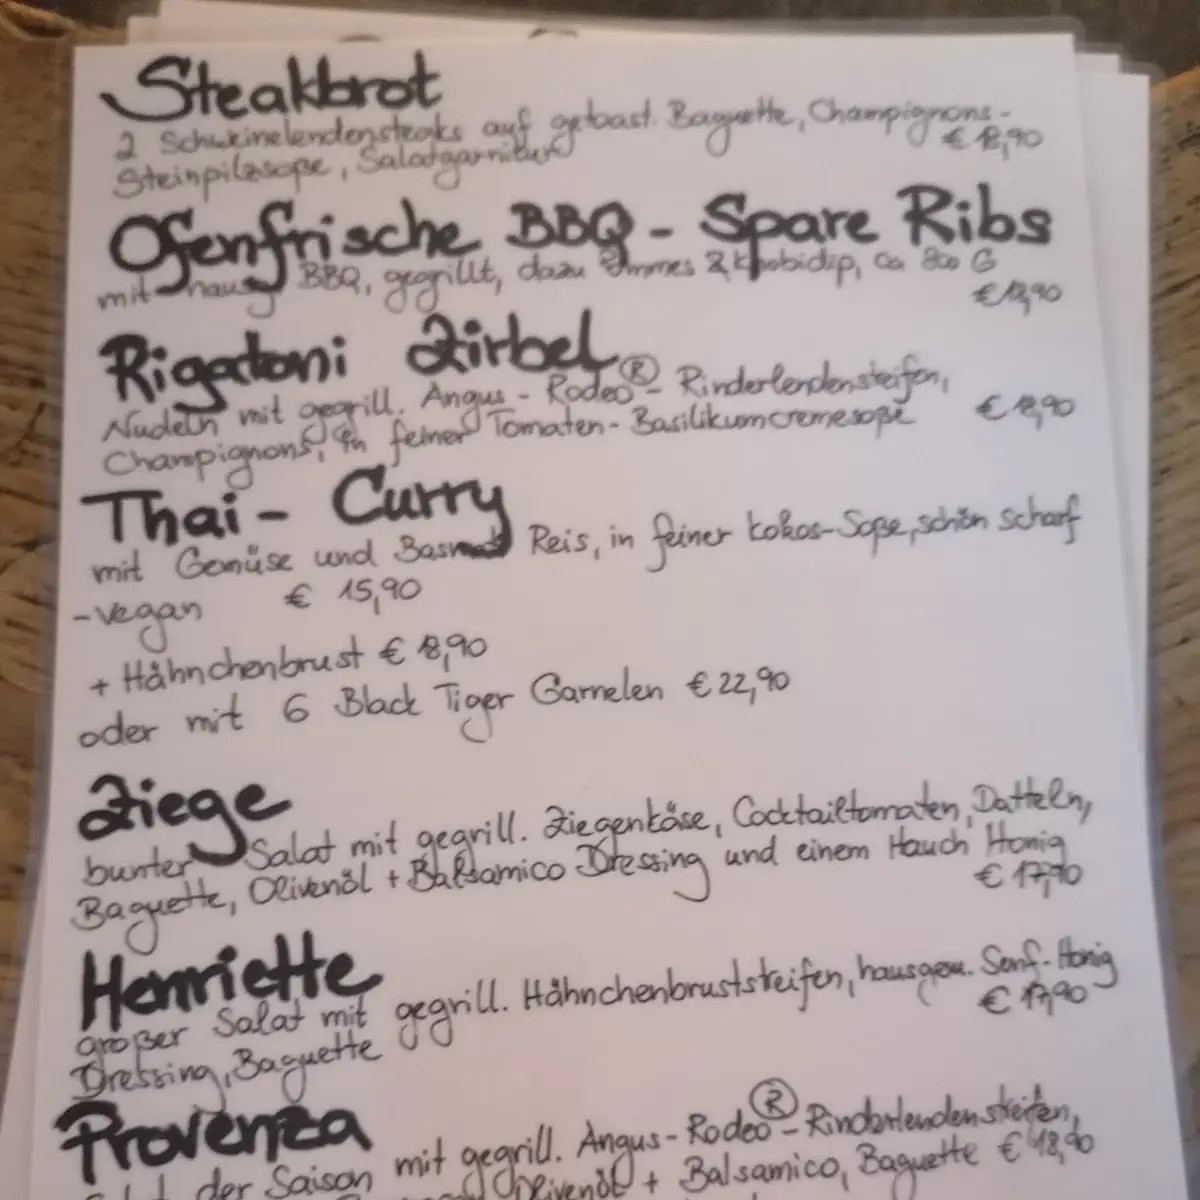 Steakbrot
2 Schweinelendensteaks auf getoast. Baguette, Champignons-
Steinpilzsoße, Salatgarnitur € 18,90
Ofenfrische BBQ - Spare Ribs
mit BBQ, gegrillt, dazu & Knobidip, ca 800 G
Rigatoni Zirbel
Nudeln mit gegrill. Angus - Rodeo® - Rinderlendensteifen,
Champignons, in feiner Tomaten- Basilikumcremesoße € 18,90
Thai - Curry
mit Gemüse und Basmati Reis, in feiner Kokos-Soße, schön scharf
- vegan € 15,90
+ Hähnchenbrust € 18,90
oder mit 6 Black Tiger Garnelen € 22,90
Ziege
bunter Salat mit gegrill. Ziegenkäse, Cocktailtomaten, Datteln,
Baguette, Olivenöl + Balsamico Dressing und einem Hauch Honig
€ 17,90
Henriette
großer Salat mit gegrill. Hähnchenbruststreifen, hausgem. Senf-Honig
Dressing, Baguette € 17,90
Provenza
der Saison mit gegrill. Angus - Rodeo® - Rinderlendensteifen,
Olivenöl + Balsamico, Baguette € 18,90